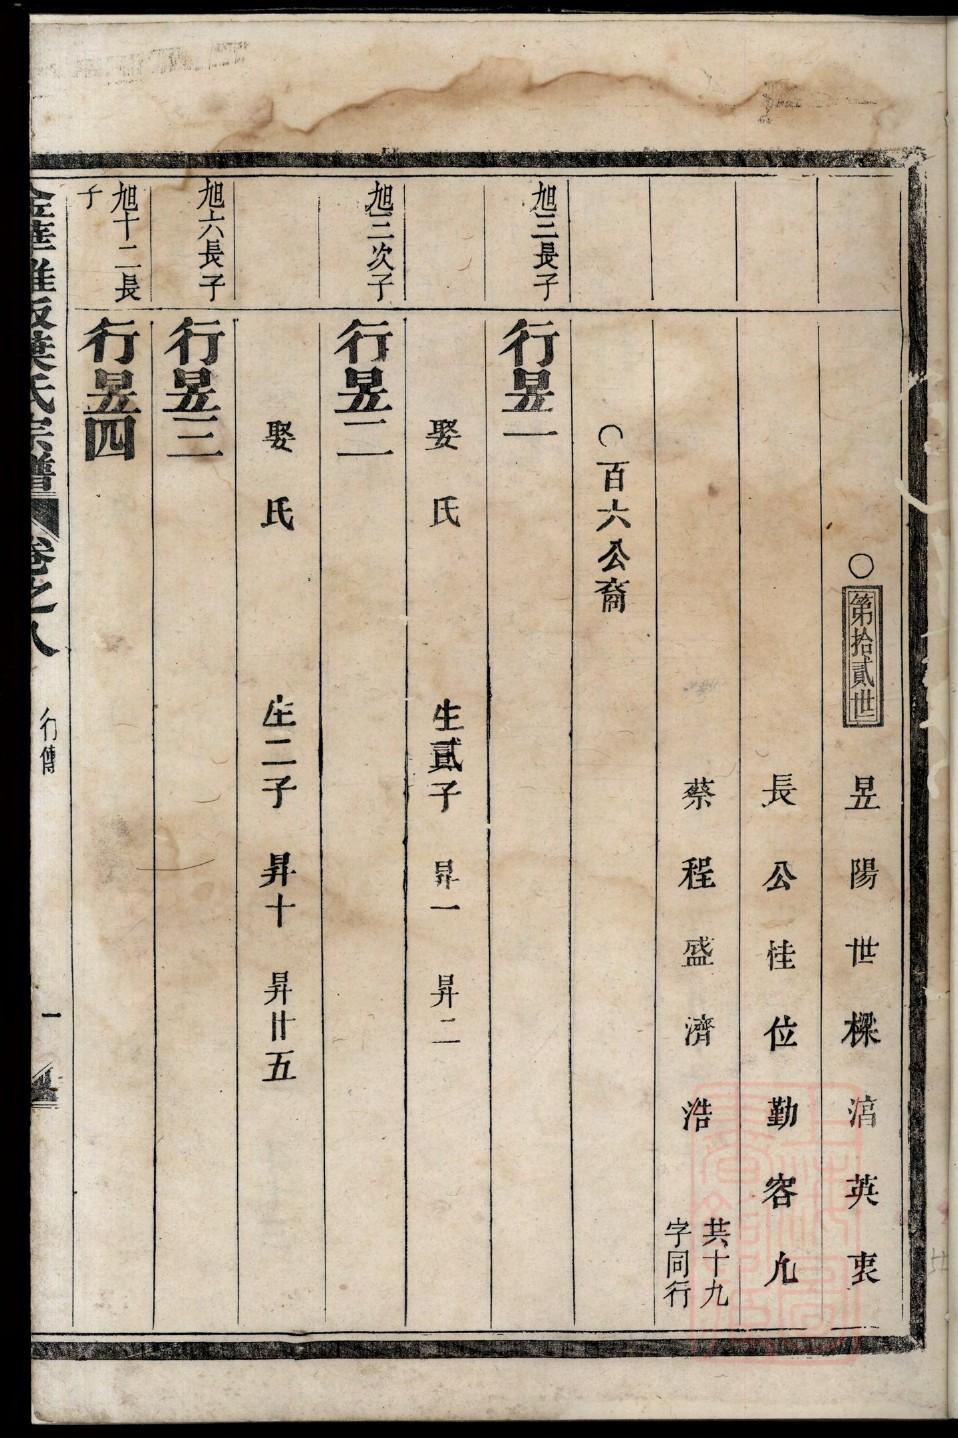 ○第拾貳世 昱陽世樑湻英衷
長公佳位勤容允
蔡程盛濟浩 共十九字同行
○百六公裔
旭三長子
行昱一
娶氏 生貳子 昇一 昇二
旭三次子
行昱二
娶氏 生二子 昇十 昇廿五
旭六長子
行昱三
旭十二長子
行昱四
金華 氏宗譜 卷之八 行傳 一